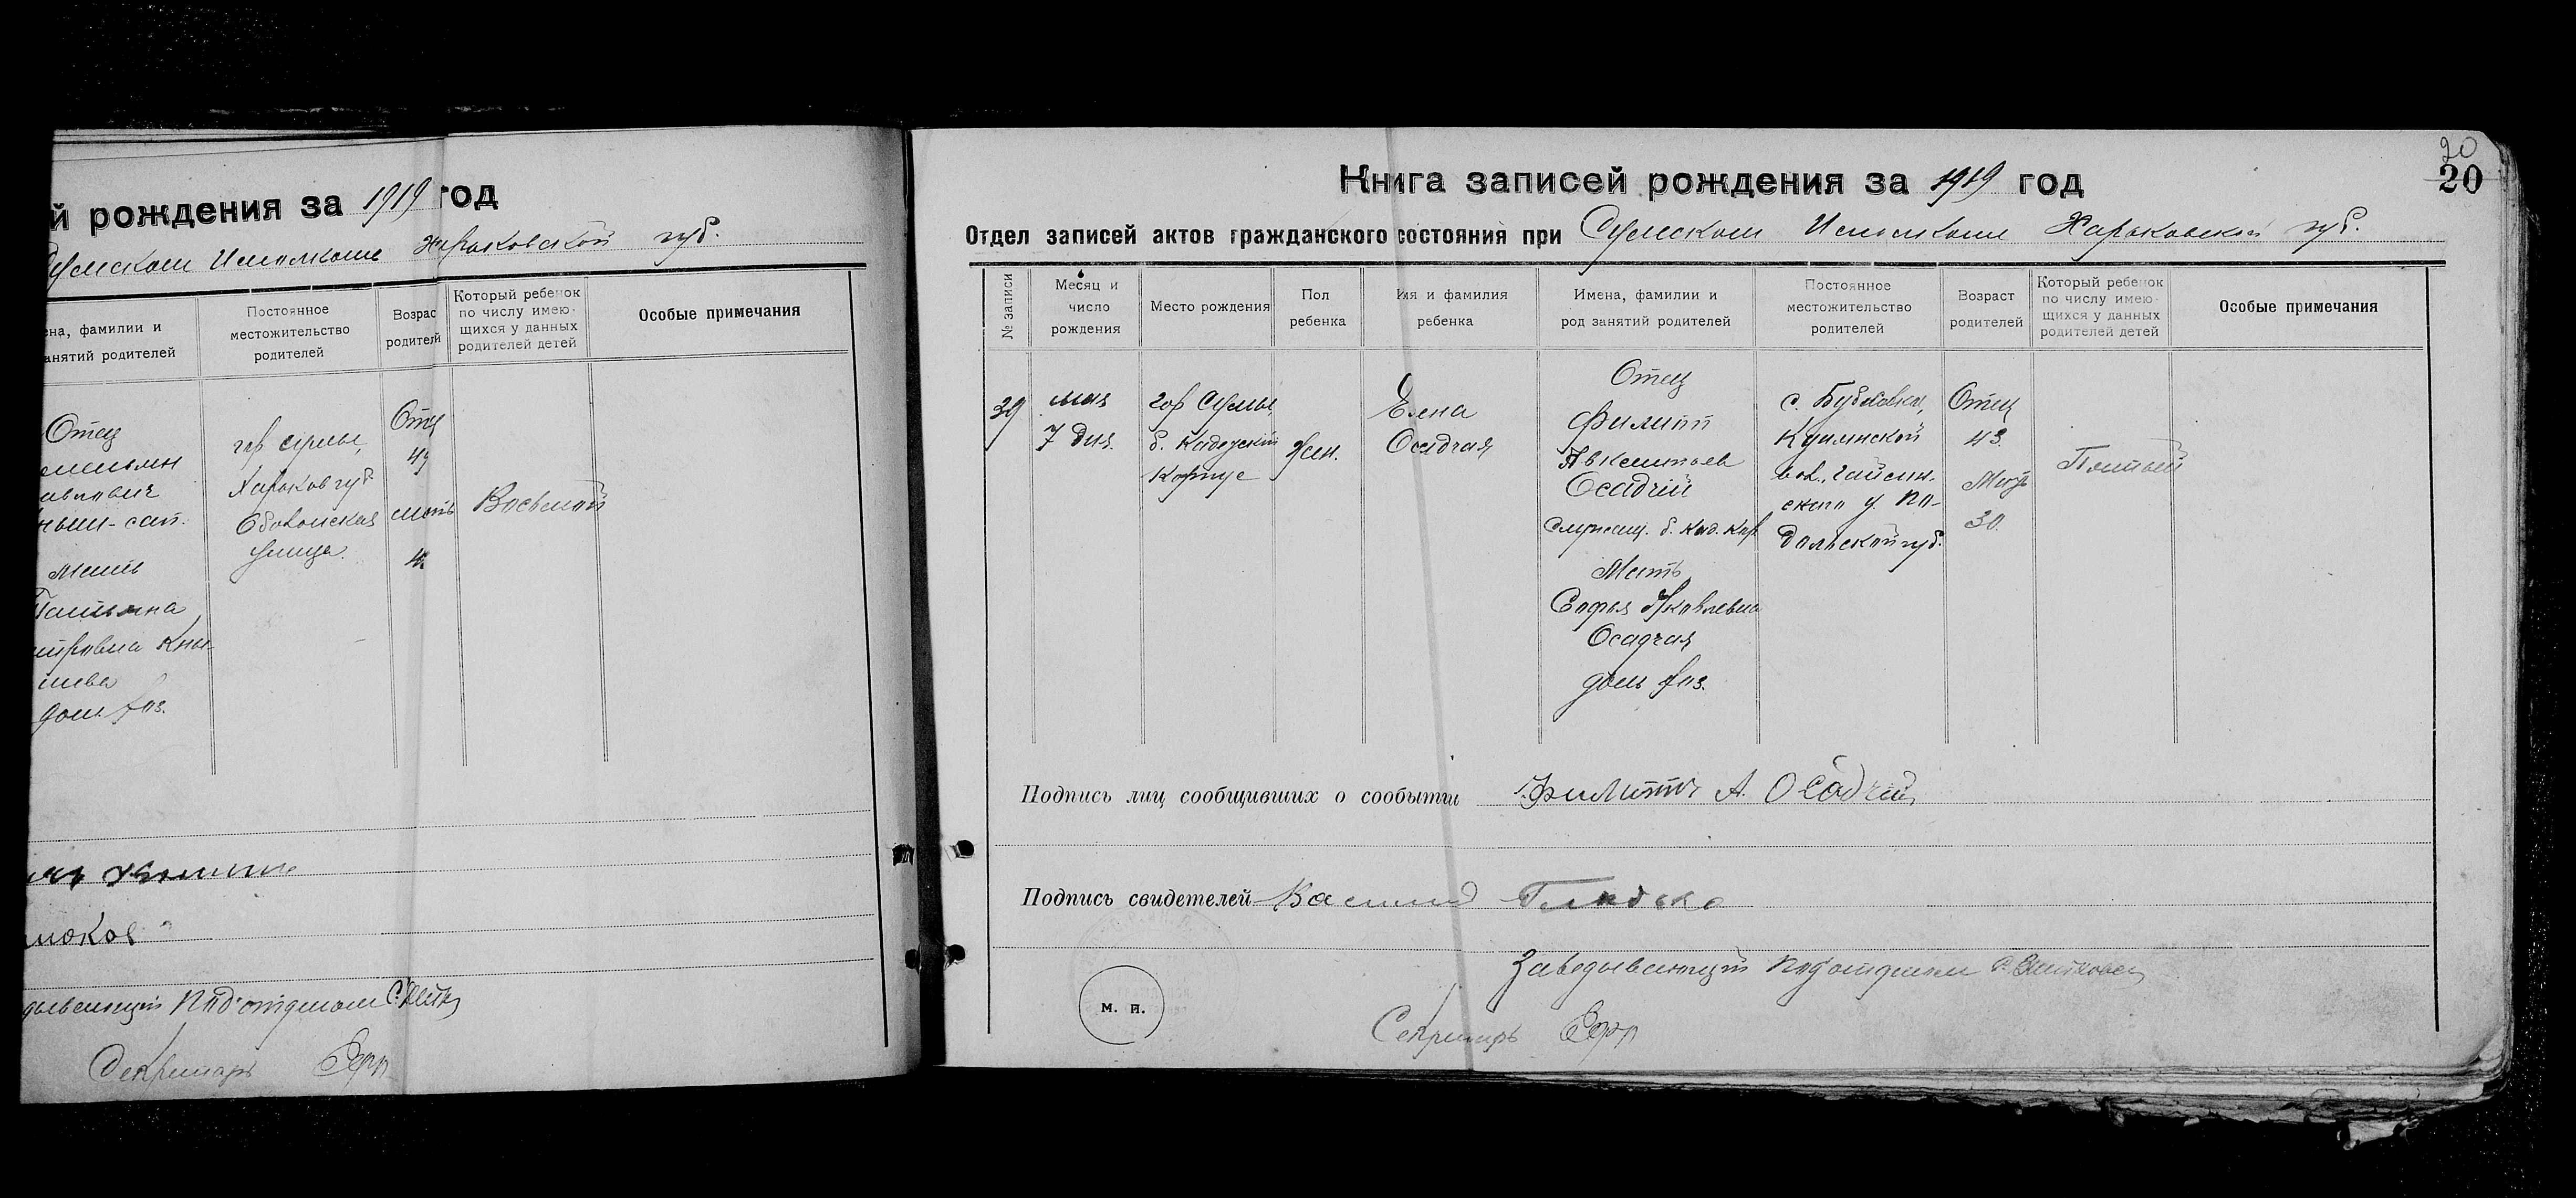 й рождения за 1919 год
Сумском Исполкоме Харьковской губ.
ена, фамилии и
анятий родителей
Постоянное
местожительство
родителей
Возрас
родителй
Который ребенок
по числу имею-
щихся у данных
родителей детей
Особые примечания
Отец
Мать
Татьяна
дом. хоз.
гор Сумы,
Харьков губ
улица
Отец
мать
Восьмой
Подотделом
Секретарь
20
20
Книга записей рождения за 1919 год
Отдел записей актов гражданского состояния при Сумском Исполкоме Харьковской губ.
№ записи
Месяц и
число
рождения
Место рождения
Пол
ребенка
Имя и фамилия
ребенка
Имена, фамилии и
род занятий родителей
Постоянное
местожительство
родителей
Возраст
родителей
Который ребенок
по числу имею-
щихся у данных
родителей детей
Особые примечания
39
мая
7 дня.
гор Сумы,
б. Кадетский
Корпус
жен.
Елена
Осадчая
Отец
Филипп
Авксентьев
Осадчій
Служащ. б. Кад. Кор.
Мать
Софья Яковлевна
Осадчая
дом хоз.
с. Бубновка,
Кунинской
вол., Гайсин-
скаго у. По-
дольской губ.
Отец
43
Мать
30
Пятый
Подпись лиц сообщивших о событии Филиппъ А. Осадчій
Подпись свидетелей Василий
Заведывающий Подотделом
м. п.
Секретарь